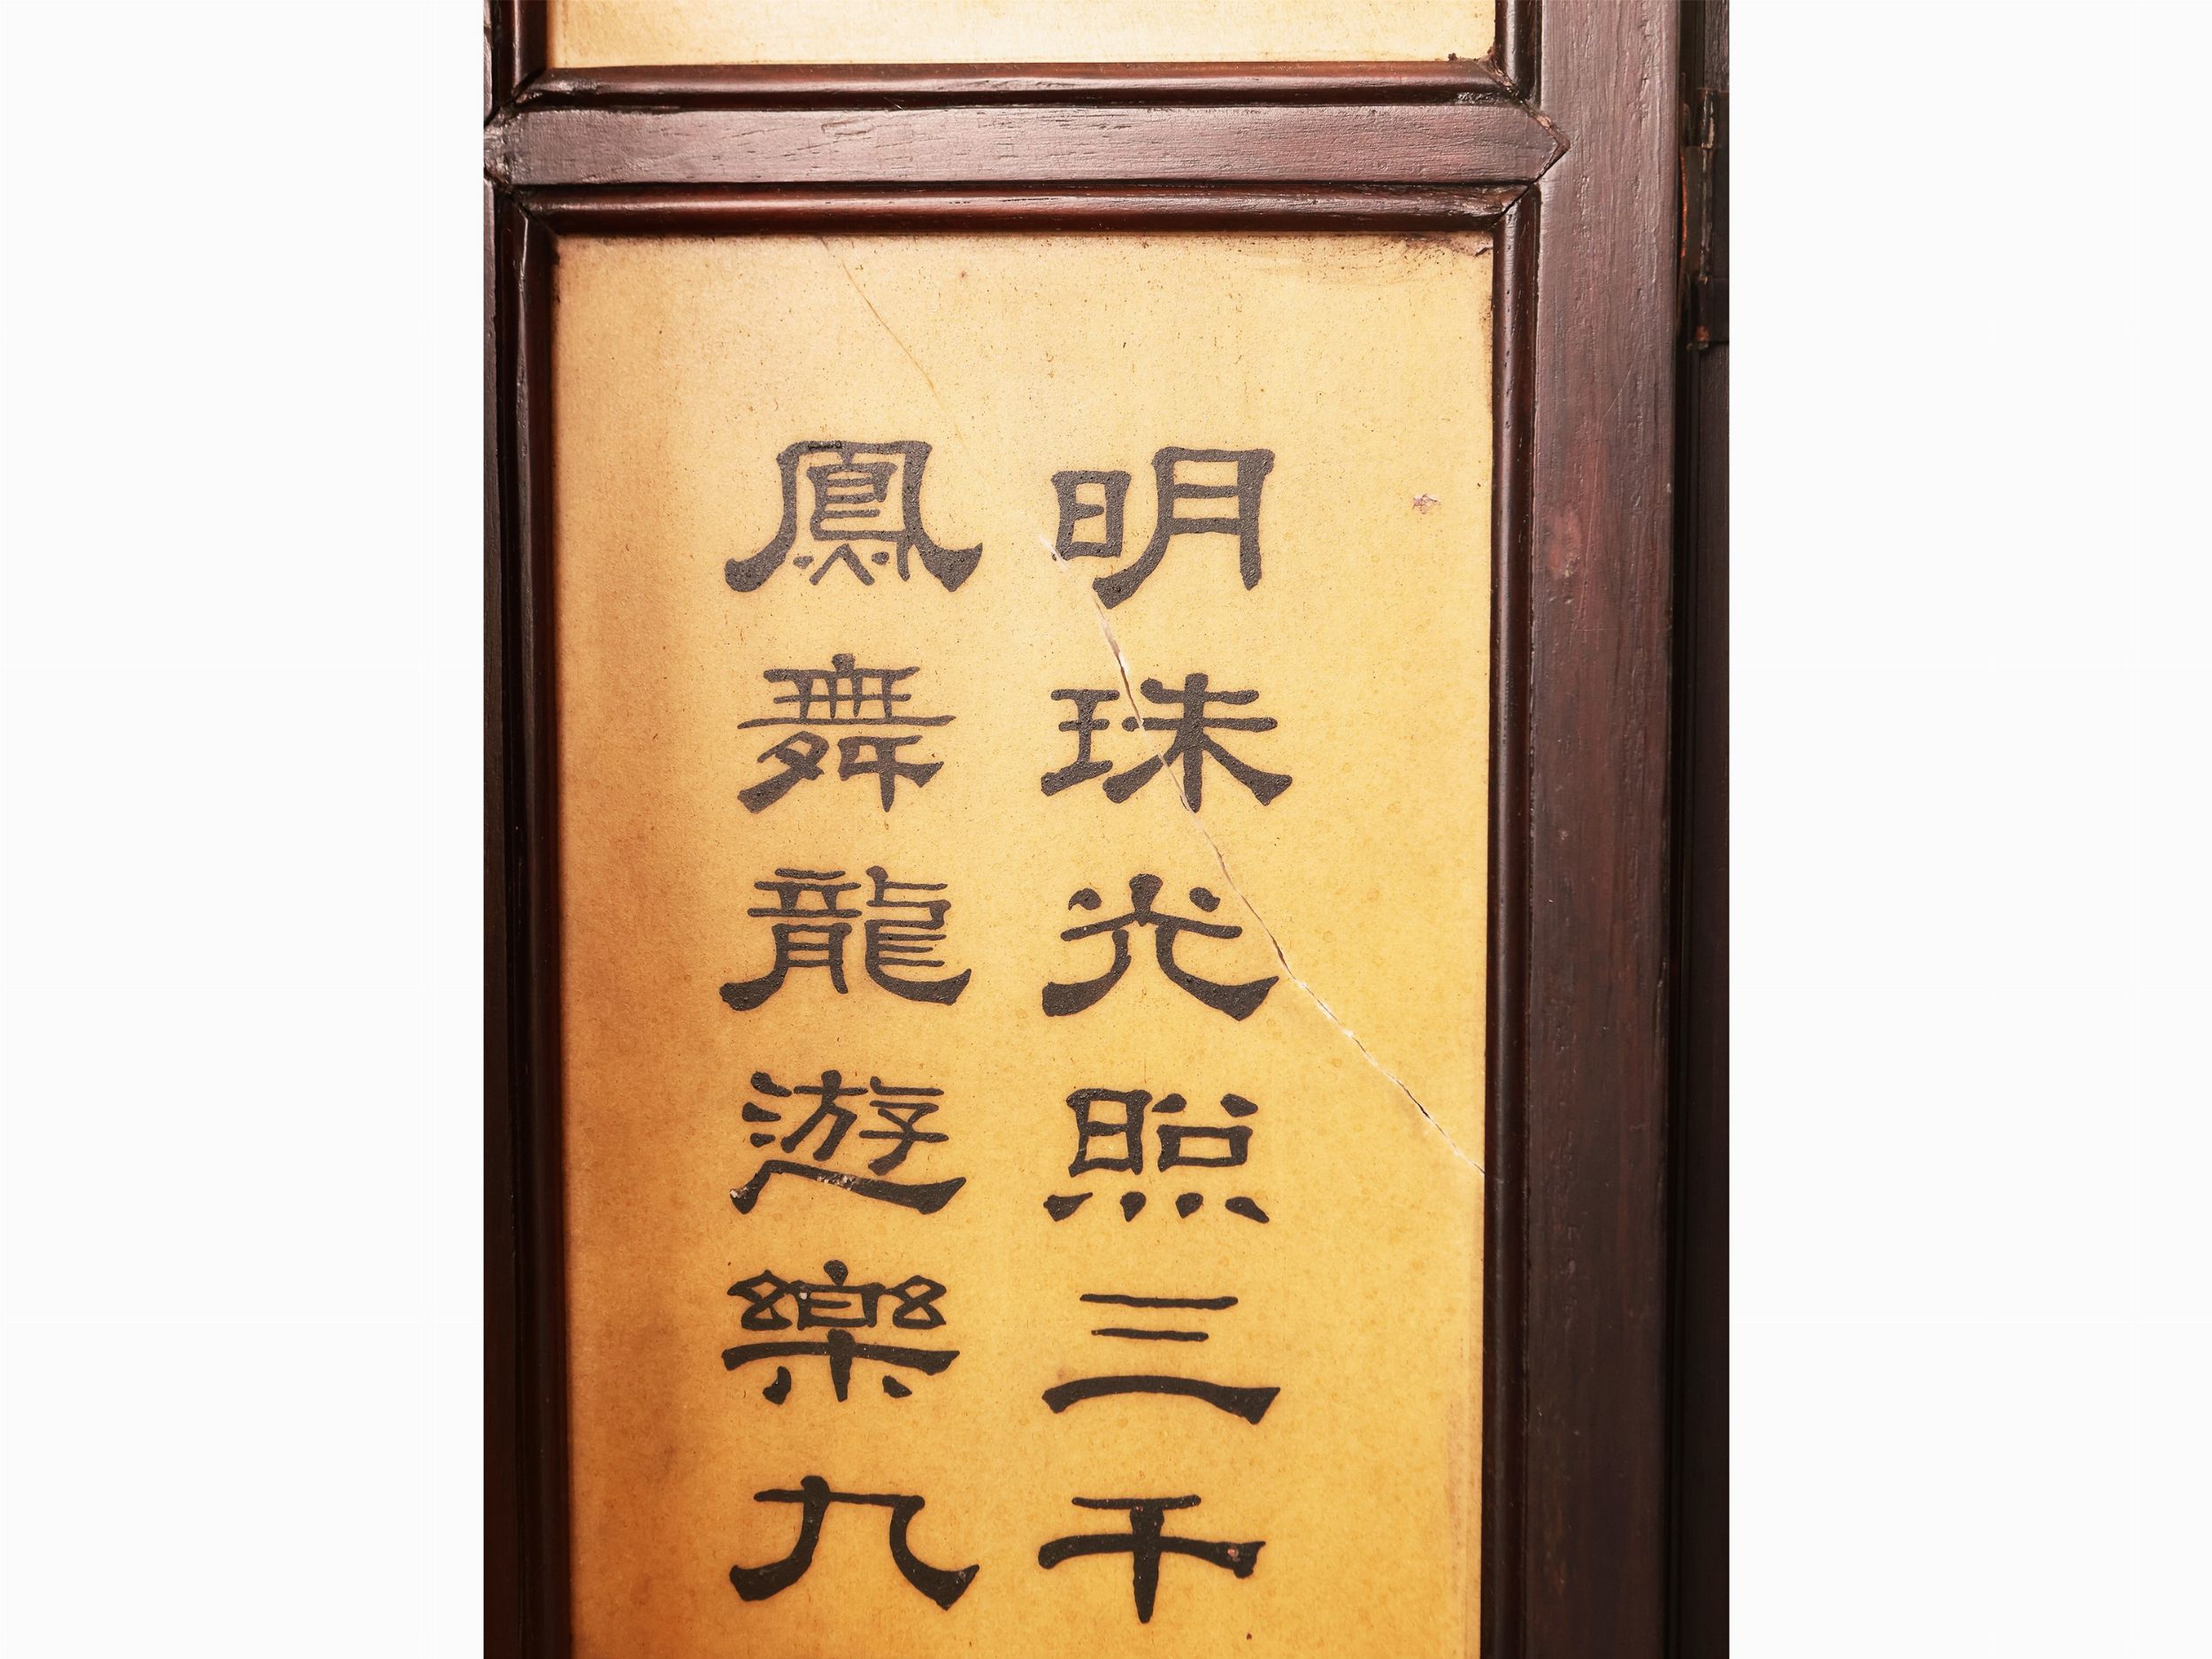 明珠光照三千
鳳舞龍遊樂九